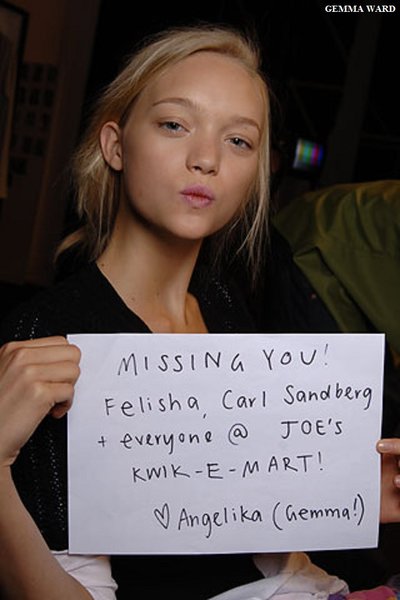 GEMMA WARD
MISSING YOU!
Felisha, Carl Sandberg
+ everyone @ JOE'S
KWIK-E-MART!
♡ Angelika (Gemma!)